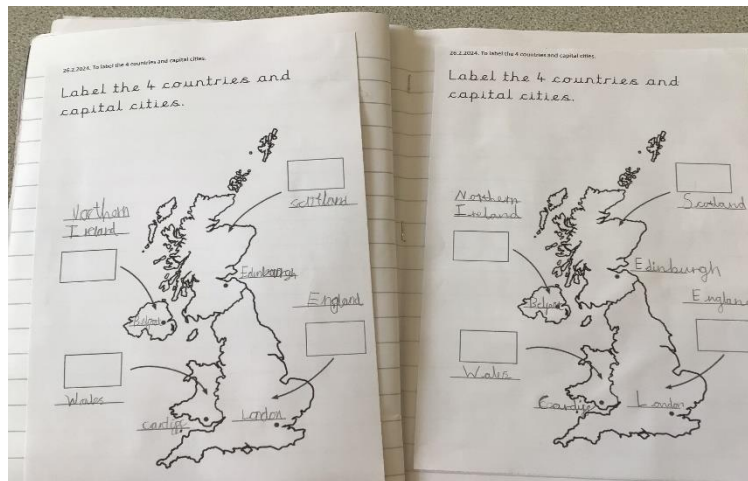 26.2.2024. To label the 4 countries and capital cities.
Label the 4 countries and
capital cities.
Northern
Ireland
Scotland
Edinburgh
England
Wales
Cardiff
London
26.2.2024. To label the 4 countries and capital cities.
Label the 4 countries and
capital cities.
Northern
Ireland
Scotland
Edinburgh
Belfast
England
Wales
Cardiff
London